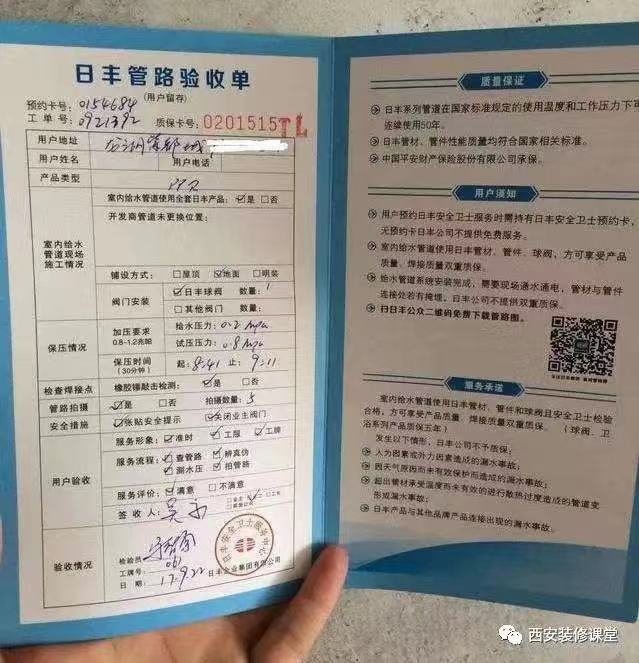 日丰管路验收单
(用户留存)
预约卡号: 0154684
工单号: 0921392
质保卡号: 0201515TL
用户地址
用户姓名
用户电话
产品类型
室内给水管道现场施工情况
室内给水管道使用全套日丰产品: ☑是 □否
开发商管道未更换位置:
铺设方式: □屋顶 ☑地面 □明装
阀门安装
☑日丰球阀 数量: 1
□其他阀门 数量:
保压情况
加压要求
0.8-1.2兆帕
给水压力: 0.2 mpa
试压压力: 0.8 mpa
保压时间
(30分钟)
起: 8:41 止: 9:11
检查焊接点
橡胶锤敲击检测: ☑是 □否
管路拍摄
☑是 □否 拍摄数量: 5
安全措施
☑张贴安全提示 ☑关闭业主阀门
用户验收
服务形象: ☑准时 ☑工服 ☑工牌
服务流程: ☑查管路 ☑辨真伪
☑测水压 ☑拍管路
服务评价: ☑满意 □不满意
签收人:
验收情况
检验员:
工牌号: 061
日期: 17.9.22
日丰企业集团有限公司
日丰安全卫士服务中心
质量保证
日丰系列管道在国家标准规定的使用温度和工作压力下可
连续使用50年。
日丰管材、管件性能质量均符合国家相关标准。
中国平安财产保险股份有限公司承保。
用户须知
用户预约日丰安全卫士服务时需持有日丰安全卫士预约卡,
无预约卡日丰公司不提供免费服务。
室内给水管道使用日丰管材、管件、球阀,方可享受产品
质量、焊接质量双重质保。
给水管道系统安装完成,需要现场通水通电,管材与管件
连接处若有掩埋,日丰公司不提供双重质保。
扫日丰公众二维码免费下载管路图。
服务承诺
室内给水管道使用日丰管材、管件和球阀且安全卫士检验
合格,方可享受产品质量、焊接质量双重质保。(球阀、卫
浴系列产品质保五年)
发生以下情形,日丰公司不予质保:
人为因素或外力因素造成的漏水事故;
因天气原因而未有效保护而造成的漏水事故;
超出管材承受温度而未有效的进行散热过度造成的管道变
形或漏水事故;
日丰产品与其他品牌产品连接出现的漏水事故。
西安装修课堂